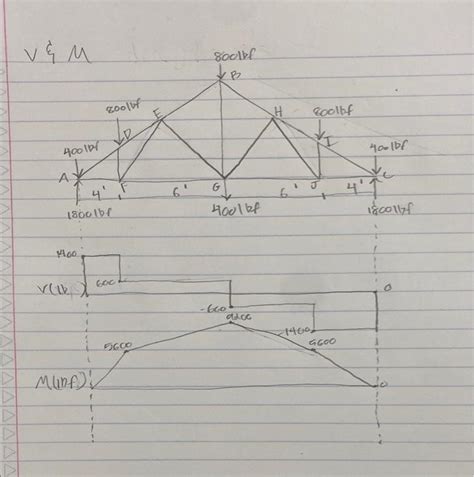 V & M
800lbf
B
800lbf
E
H
800lbf
400lbf
D
I
400lbf
A
F
G
J
C
4'
6'
6'
4'
1800lbf
400lbf
1800lbf
1400
600
V(lb)
0
-600
-1400
9200
5600
5600
M(lb.f)
0